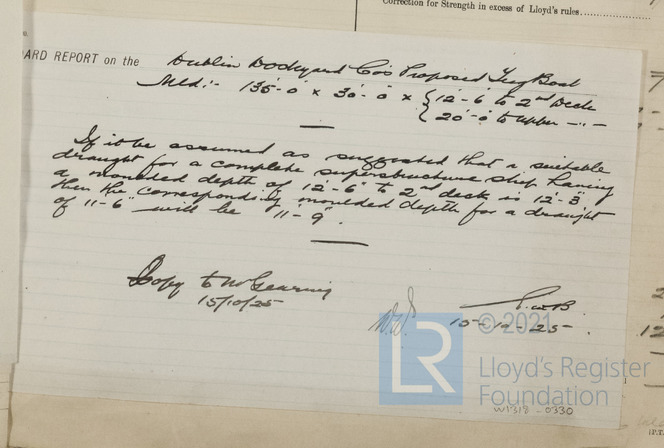 Correction for Strength in excess of Lloyd's rules
ARD REPORT on the Dublin Dockyard Co's Proposed Tug Boat
Mld:- 135'-0 x 30'-0 x { 12'-6 to 2nd Deck
{ 20'-0 to upper -"-
If it be assumed as suggested that a suitable
draught for a complete superstructure ship having
a moulded depth of 12'-6" to 2nd deck is 12'-3"
then the corresponding moulded depth for a draught
of 11'-6" will be 11'-9".
Copy to Mr Gearing
15/10/25
15-10-25
© 2021
LR
Lloyd's Register
Foundation
W1318-0330
(P.T.